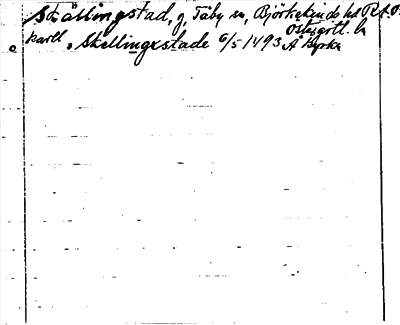 Skällingstad, g, Täby sn, Björkekinds hd
Östergötl. ln
Skellingxstade 6/5 1493 A Byrka